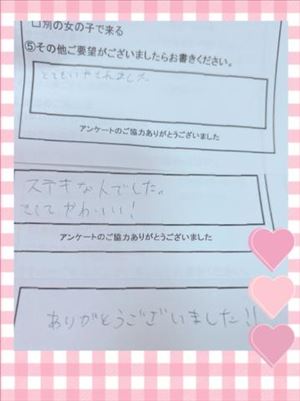 □別の女の子で来る
⑤その他ご要望がございましたらお書きください。
とてもいやされました
アンケートのご協力ありがとうございました
ステキな人でした。
とてもかわいい!
アンケートのご協力ありがとうございました
ありがとうございました!!